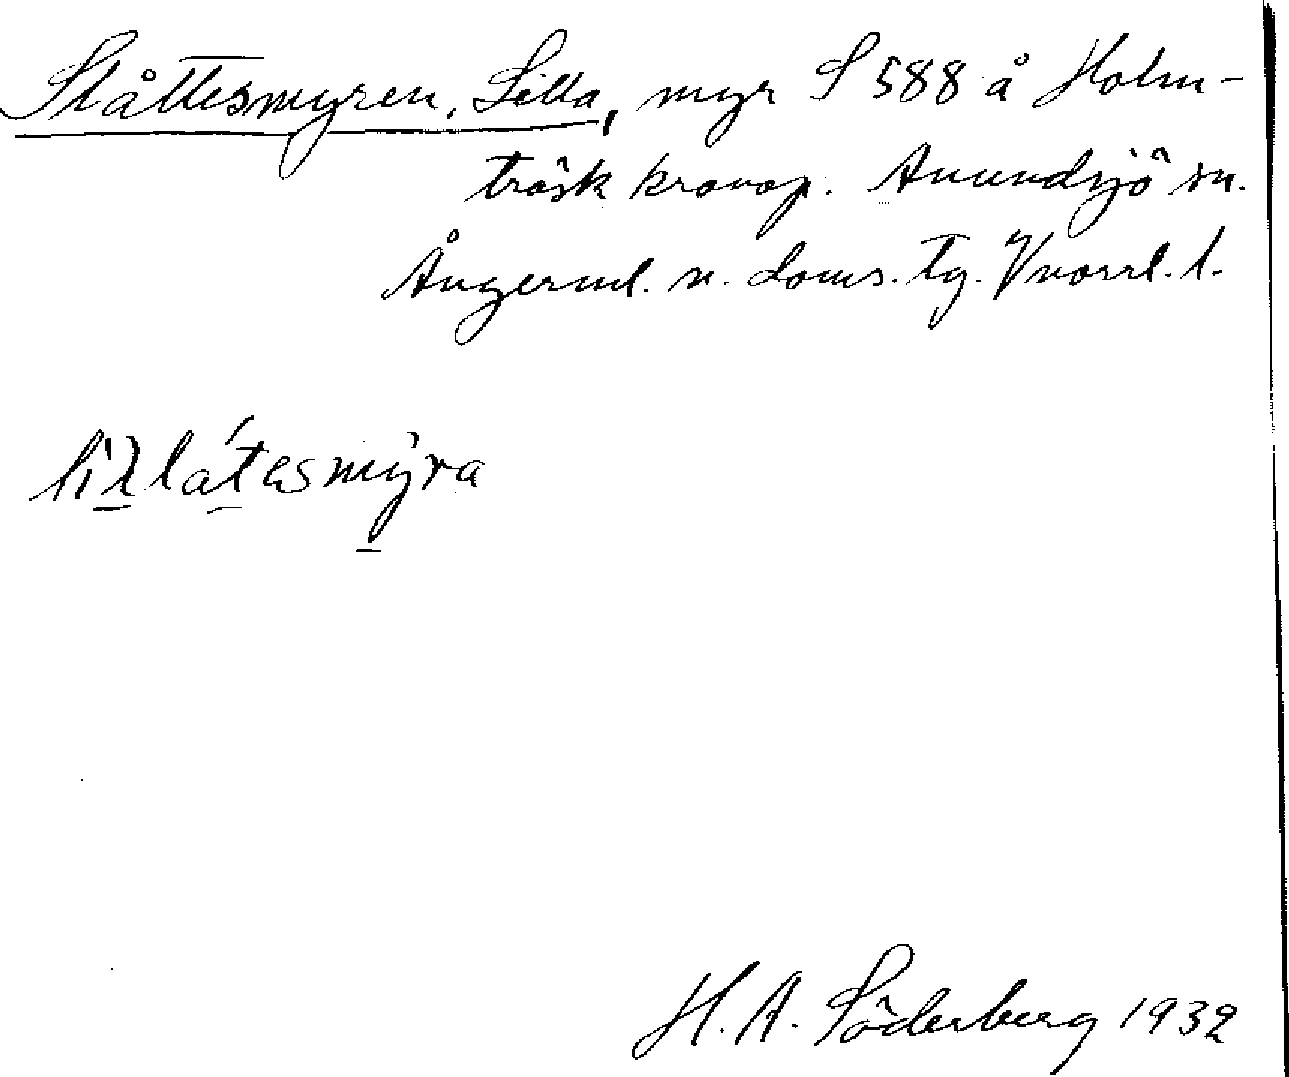 Slåttesmyren, Lilla, myr S 588 å Holm-
träsk kronop. Anundsjö sn.
Ångerml. n. doms. tg. Vnorrl. l.
lìllátesmy̆ra
H. A. Söderberg 1932